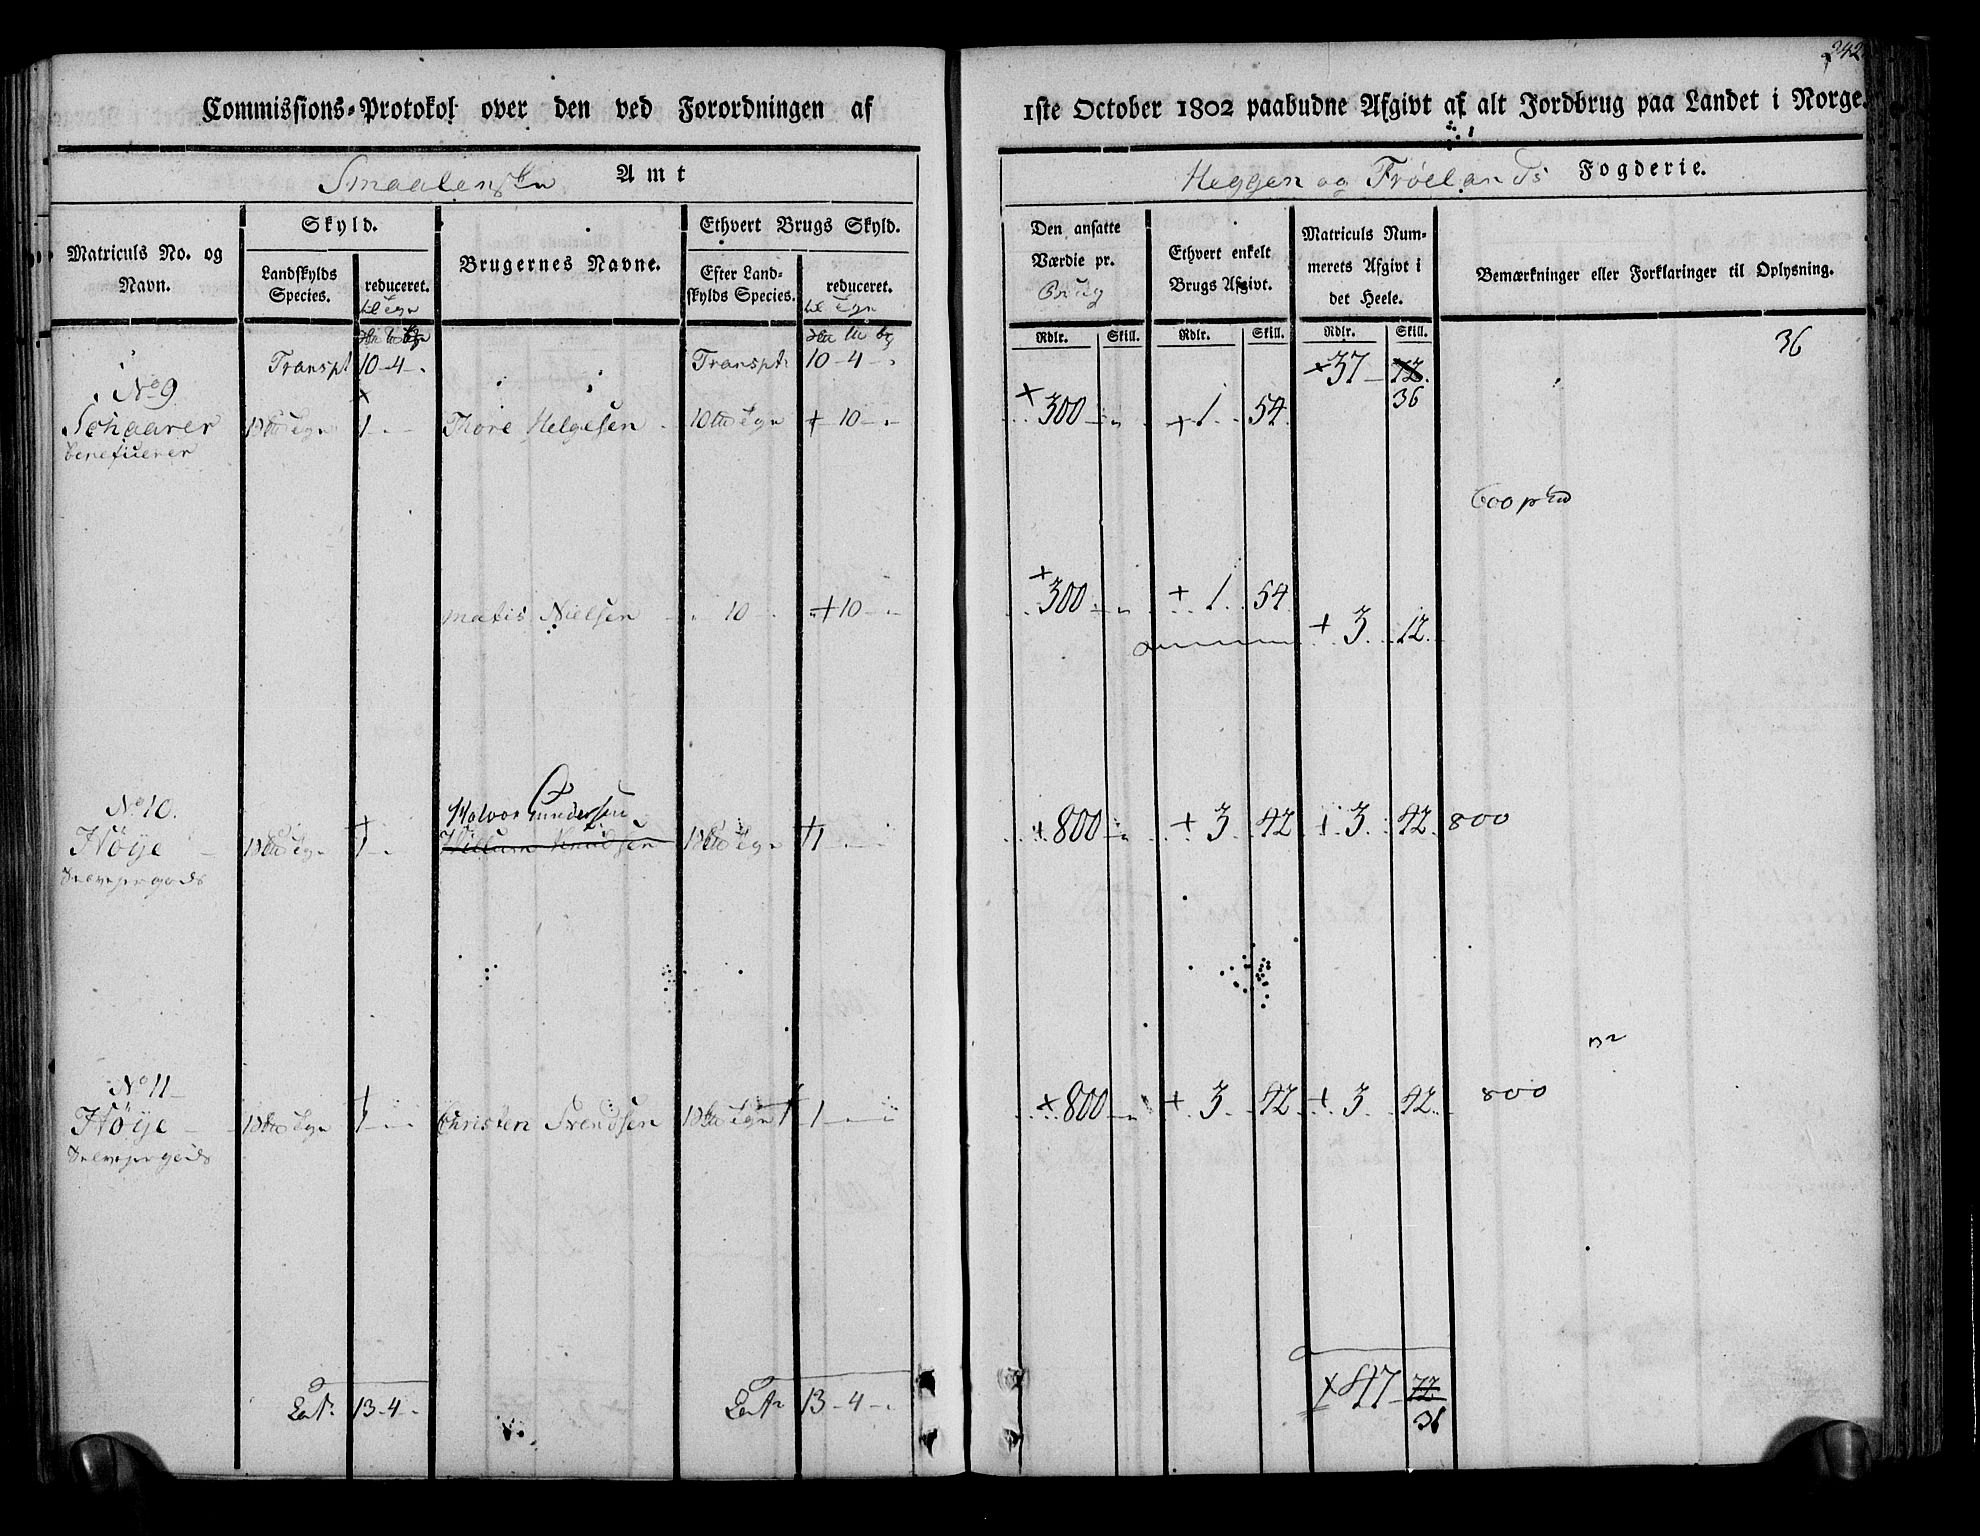 242
Commissions-Protokol over den ved Forordningen af 1ste October 1802 paabudne Afgivt af alt Jordbrug paa Landet i Norge.
Smaalenske Amt
Heggen og Frøelands Fogderie.
Matriculs No. og Navn.
Skyld.
Landskylds Species.
reduceret.
til Tgn
Brugernes Navne.
Ethvert Brugs Skyld.
Efter Landskylds Species.
reduceret.
til Tgn
Den ansatte Værdie pr. Brug
Ethvert enkelt Brugs Afgivt.
Matriculs Nummerets Afgivt i det Heele.
Bemærkninger eller Forklaringer til Oplysning.
Rdlr. Skill. Rdlr. Skill. Rdlr. Skill.
Transpt 10-4-. Transpt 10-4-. 37- 12. 36
36
No 9
Schaarer 1 1-.- Thore Helgesen 10 10-.- 300 1. 54.
beneficerer
600
Matis Nielsen 10 10-.- 300 1. 54.
3. 12.
No 10.
Høije 1 1-. Halvor Gundersen 1 1 800 3. 42 3. 42. 800
Willum Knudsen
Selvejergods
No 11
Høije 1 1 Christen Svendsen 1 1 800 3. 42 3. 42. 800
Selvejergods
Lat. 13-4-. Lat. 13-4-. 47- 72. 36